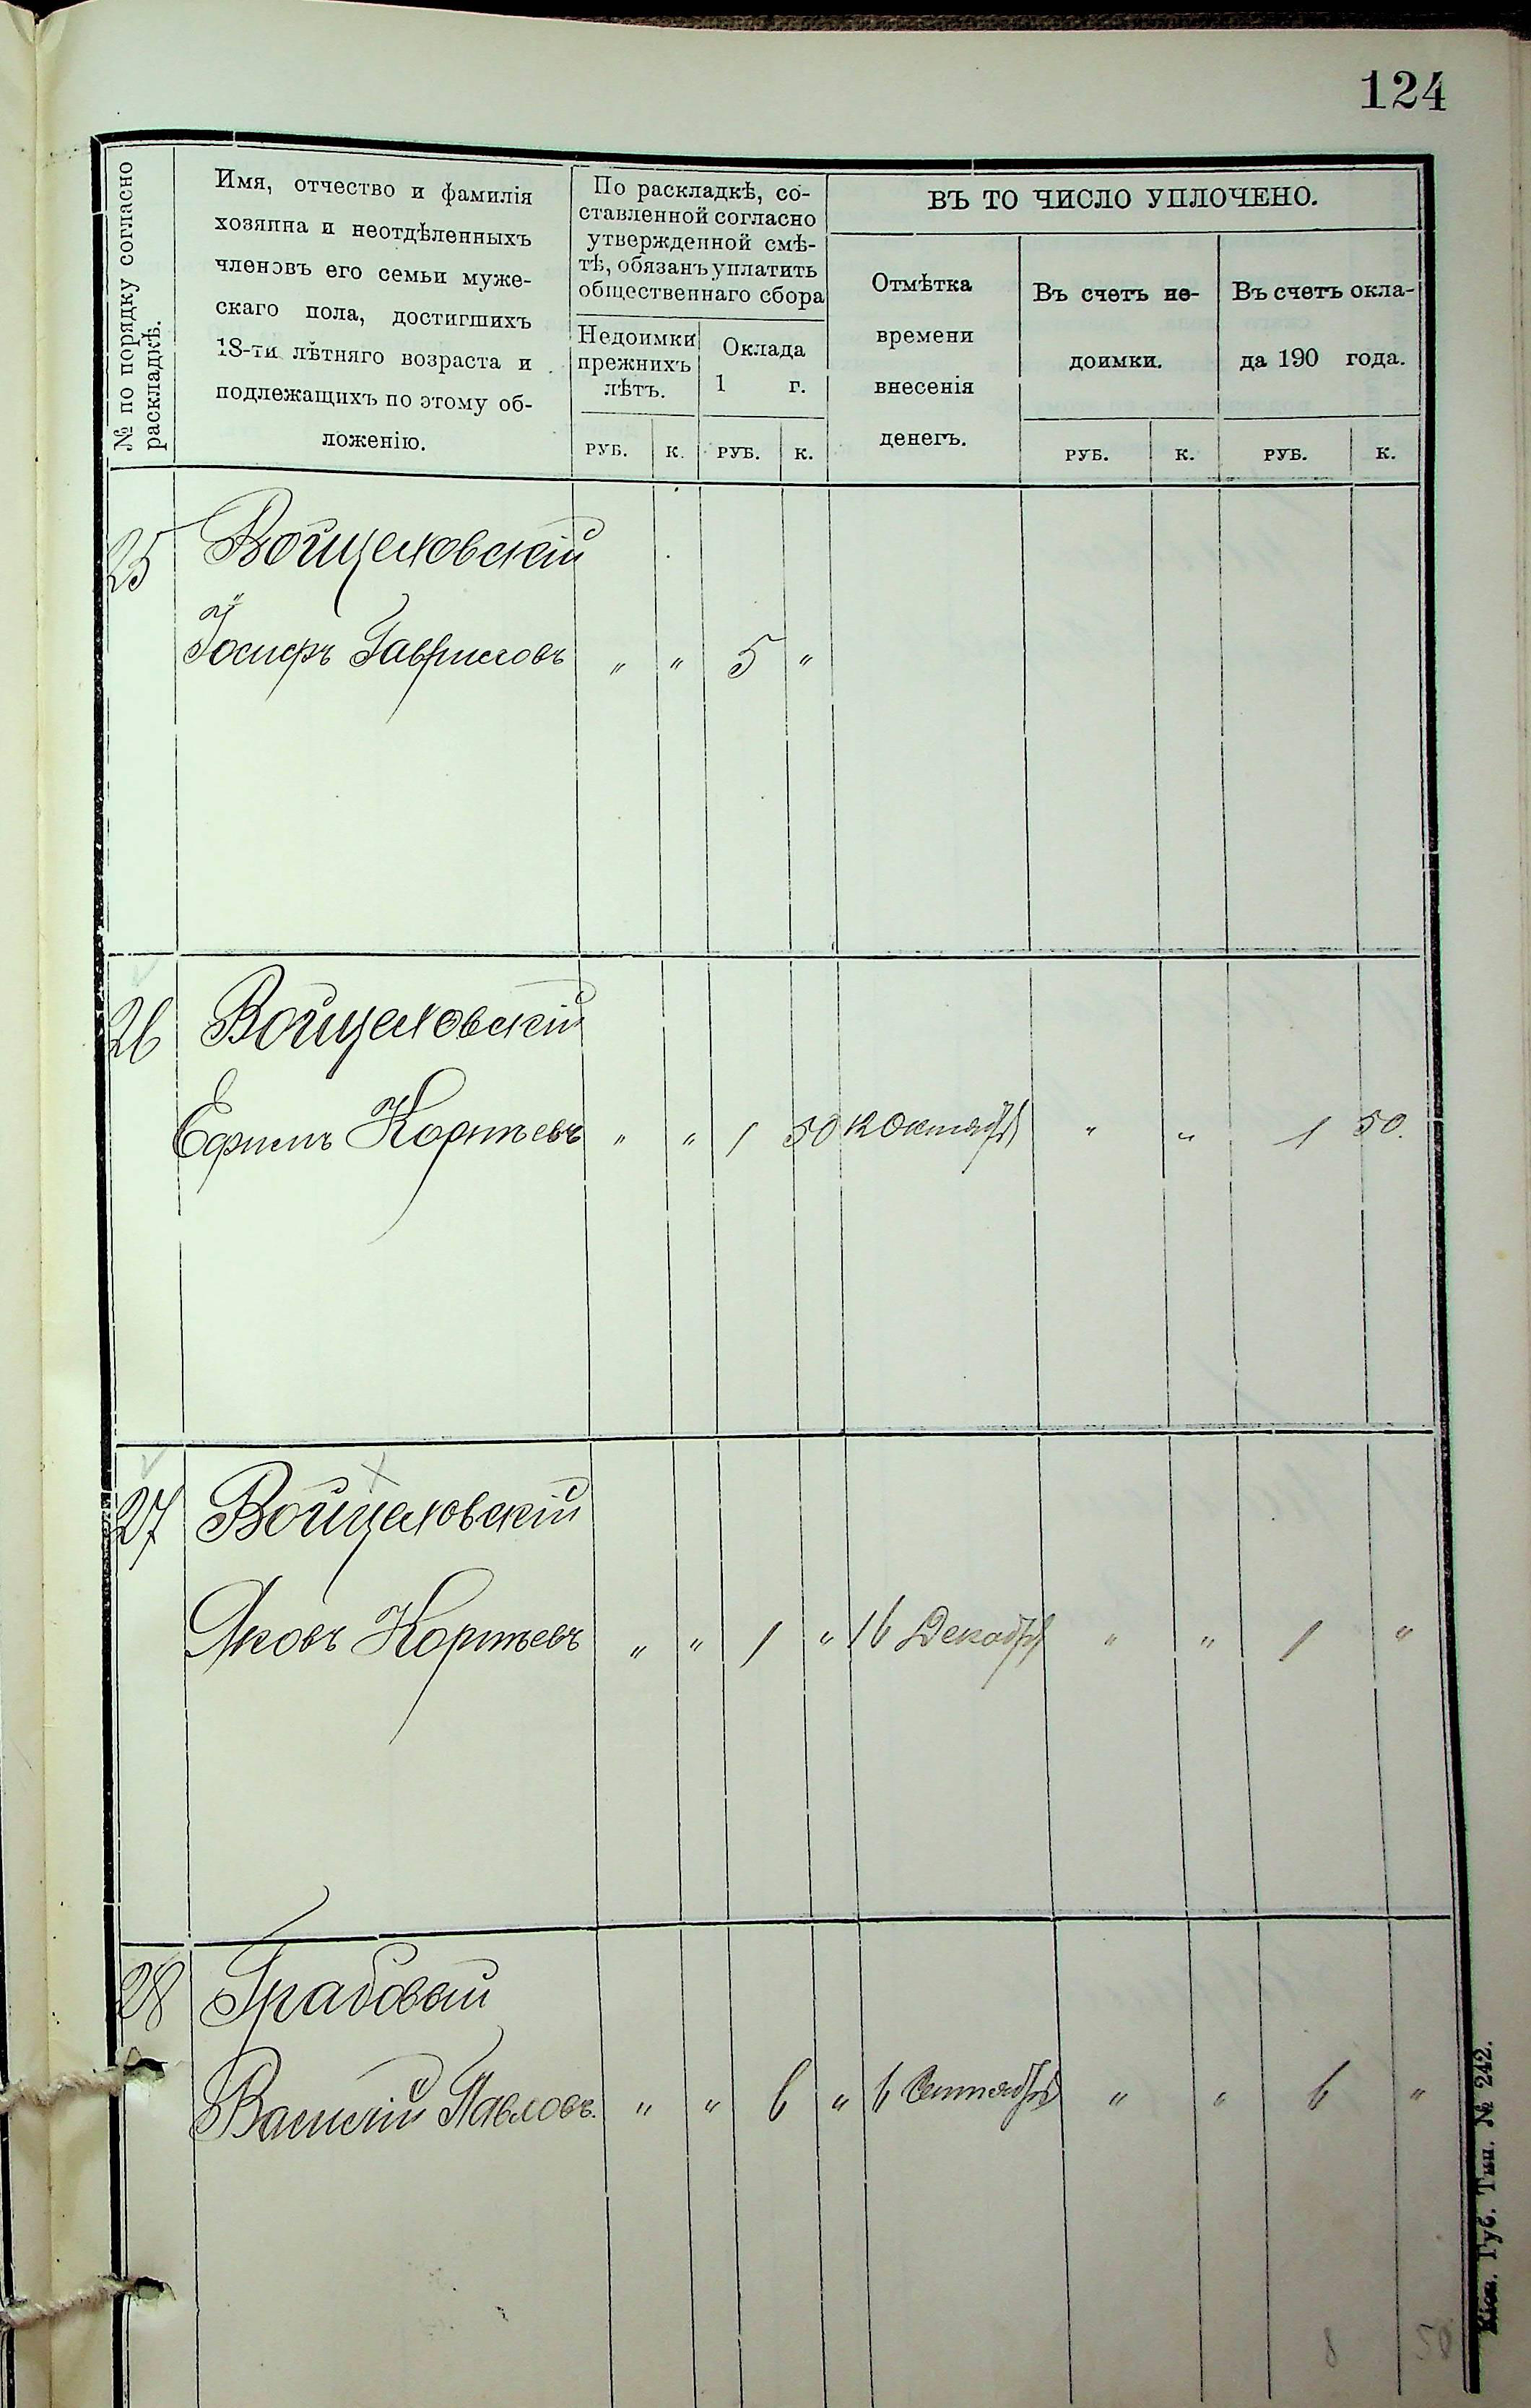 124
№ по порядку согласно
раскладкѣ.
Имя, отчество и фамилія
хозяина и неотдѣленныхъ
членовъ его семьи муже-
скаго пола, достигшихъ
18-ти лѣтняго возраста и
подлежащихъ по этому об-
ложенію.
По раскладкѣ, со-
ставленной согласно
утвержденной смѣ-
тѣ, обязанъ уплатить
общественнаго сбора
Недоимки
прежнихъ
лѣтъ.
Оклада
1 г.
РУБ. К. РУБ. К.
ВЪ ТО ЧИСЛО УПЛОЧЕНО.
Отмѣтка
времени
внесенія
денегъ.
Въ счетъ не-
доимки.
Въ счетъ окла-
да 190 года.
РУБ. К. РУБ. К.
25 Войцеховскій
Іосифъ Гавриловъ " " 5 "
26 Войцеховскій
Ефимъ Корнѣевъ " " 1 50 12 Октября " " 1 50.
27 Войцеховскій
Яковъ Корнѣевъ " " 1 " 16 Декабря " " 1 "
28 Грабовый
Василій Павловъ. " " 6 " 6 Сентября " " 6 "
8 50
Кіев. Губ. Тип. № 242.